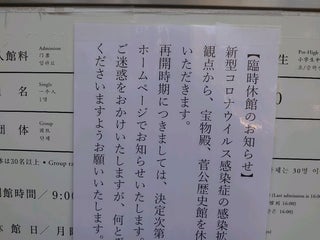 【臨時休館のお知らせ】
新型コロナウイルス感染症の感染拡
観点から、宝物殿、菅公歴史館を休
いただきます。
再開時期につきましては、決定次第
ホームページでお知らせいたします。
ご迷惑をおかけいたしますが、何と
くださいますようお願いいたします。
入館料
Admission
门票
입장료
名
Single
一个人
1명
団体
Group
团队
단체
体は30名以上・Group
館時間／9:00
休館日／月